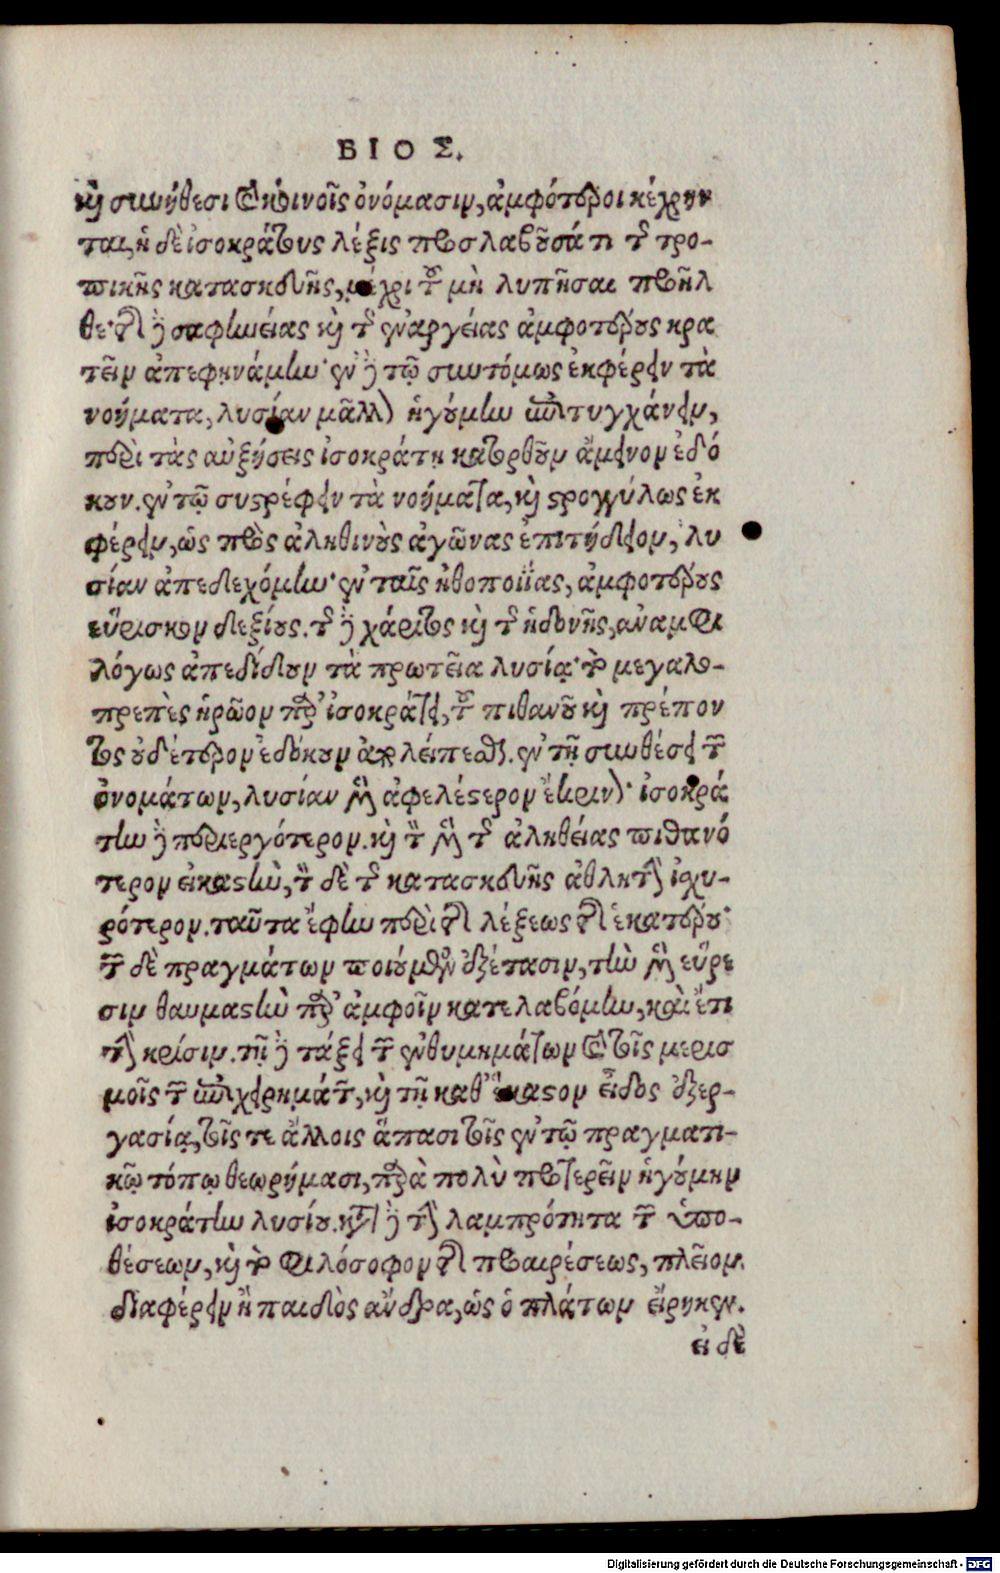 ΒΙΟΣ.
καὶ συνήθεσι καὶ κοινοῖς ὀνόμασιν, ἀμφότεροι κέχρην
ται, ἡ δὲ ἰσοκράτους λέξις προσλαβοῦσά τι τῆς τρο-
πικῆς κατασκευῆς, μέχρι τοῦ μὴ λυπῆσαι προῆλ
θε· τῆς δὲ σαφηνείας καὶ τῆς ἐναργείας ἀμφοτέρους κρα
τεῖν ἀπεφηνάμην· ἐν δὲ τῷ συντόμως ἐκφέρειν τὰ
νοήματα, λυσίαν μᾶλλον ἡγούμην ἐπιτυγχάνειν,
περὶ τὰς αὐξήσεις ἰσοκράτη κατορθοῦν ἄμεινον ἐδό
κουν. ἐν τῷ συστρέφειν τὰ νοήματα, καὶ στρογγύλως ἐκ
φέρειν, ὡς πρὸς ἀληθινοὺς ἀγῶνας ἐπιτήδειον, λυ
σίαν ἀπεδεχόμην· ἐν ταῖς ἠθοποιΐας, ἀμφοτέρους
εὕρισκον δεξίους. τῆς δὲ χάριτος καὶ τῆς ἡδονῆς, ἀναμφι
λόγως ἀπεδίδουν τὰ πρωτεῖα λυσίᾳ· τὸ μεγαλο-
πρεπὲς ἡρῶον παρ' ἰσοκράτει, τοῦ πιθανοῦ καὶ πρέπον
τος οὐδέτερον ἐδόκουν ἀπολείπεσθαι. ἐν τῇ συνθέσει τῶν
ὀνομάτων, λυσίαν μὲν ἀφελέστερον ἔκρινον· ἰσοκρά
την δὲ περιεργότερον. καὶ τὸν μὲν τῆς ἀληθείας πιθανό
τερον εἰκαστὴν, τὸν δὲ τῆς κατασκευῆς ἀθλητὴν ἰσχυ-
ρότερον. ταῦτα ἔφην περὶ τῆς λέξεως τῆς ἑκατέρου·
τῶν δὲ πραγμάτων ποιούμενος ἐξέτασιν, τὴν μὲν εὕρε
σιν θαυμαστὴν παρ' ἀμφοῖν κατελαβόμην, καὶ ἔτι
τὴν κρίσιν. τῇ δὲ τάξει τῶν ἐνθυμημάτων καὶ τοῖς μερισ
μοῖς τῶν ἐπιχειρημάτων, καὶ τῇ καθ' ἕκαστον εἶδος ἐξερ-
γασίᾳ, τοῖς τε ἄλλοις ἅπασι τοῖς ἐν τῷ πραγματι-
κῷ τόπῳ θεωρήμασι, παρὰ πολὺ προτερεῖν ἡγούμην
ἰσοκράτην λυσίου. κατὰ δὲ τὴν λαμπρότητα τῶν ὑπο-
θέσεων, καὶ τὸ φιλόσοφον τῆς προαιρέσεως, πλεῖον
διαφέρειν ἢ παιδὸς ἄνδρα, ὡς ὁ πλάτων εἴρηκεν.
εἰ δὲ
Digitalisierung gefördert durch die Deutsche Forschungsgemeinschaft - DFG